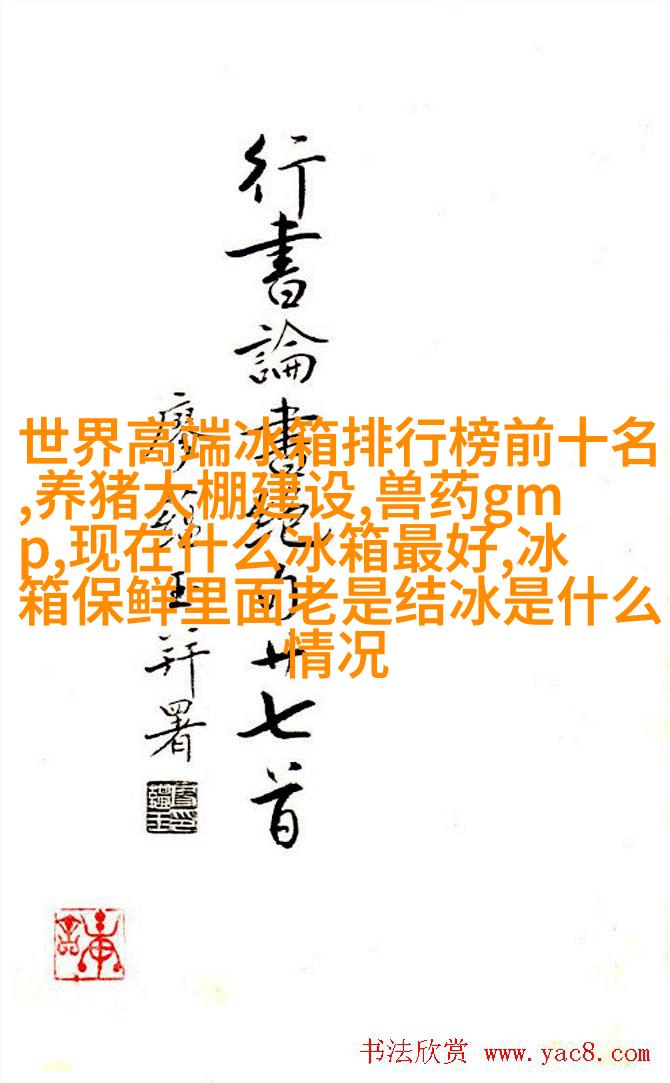 行書論書絕句廿七首
廖蘊玉并署
世界高端冰箱排行榜前十名
,养猪大棚建设,兽药gm
p,现在什么冰箱最好,冰
箱保鲜里面老是结冰是什么
情况
书法欣赏 www.yac8.com